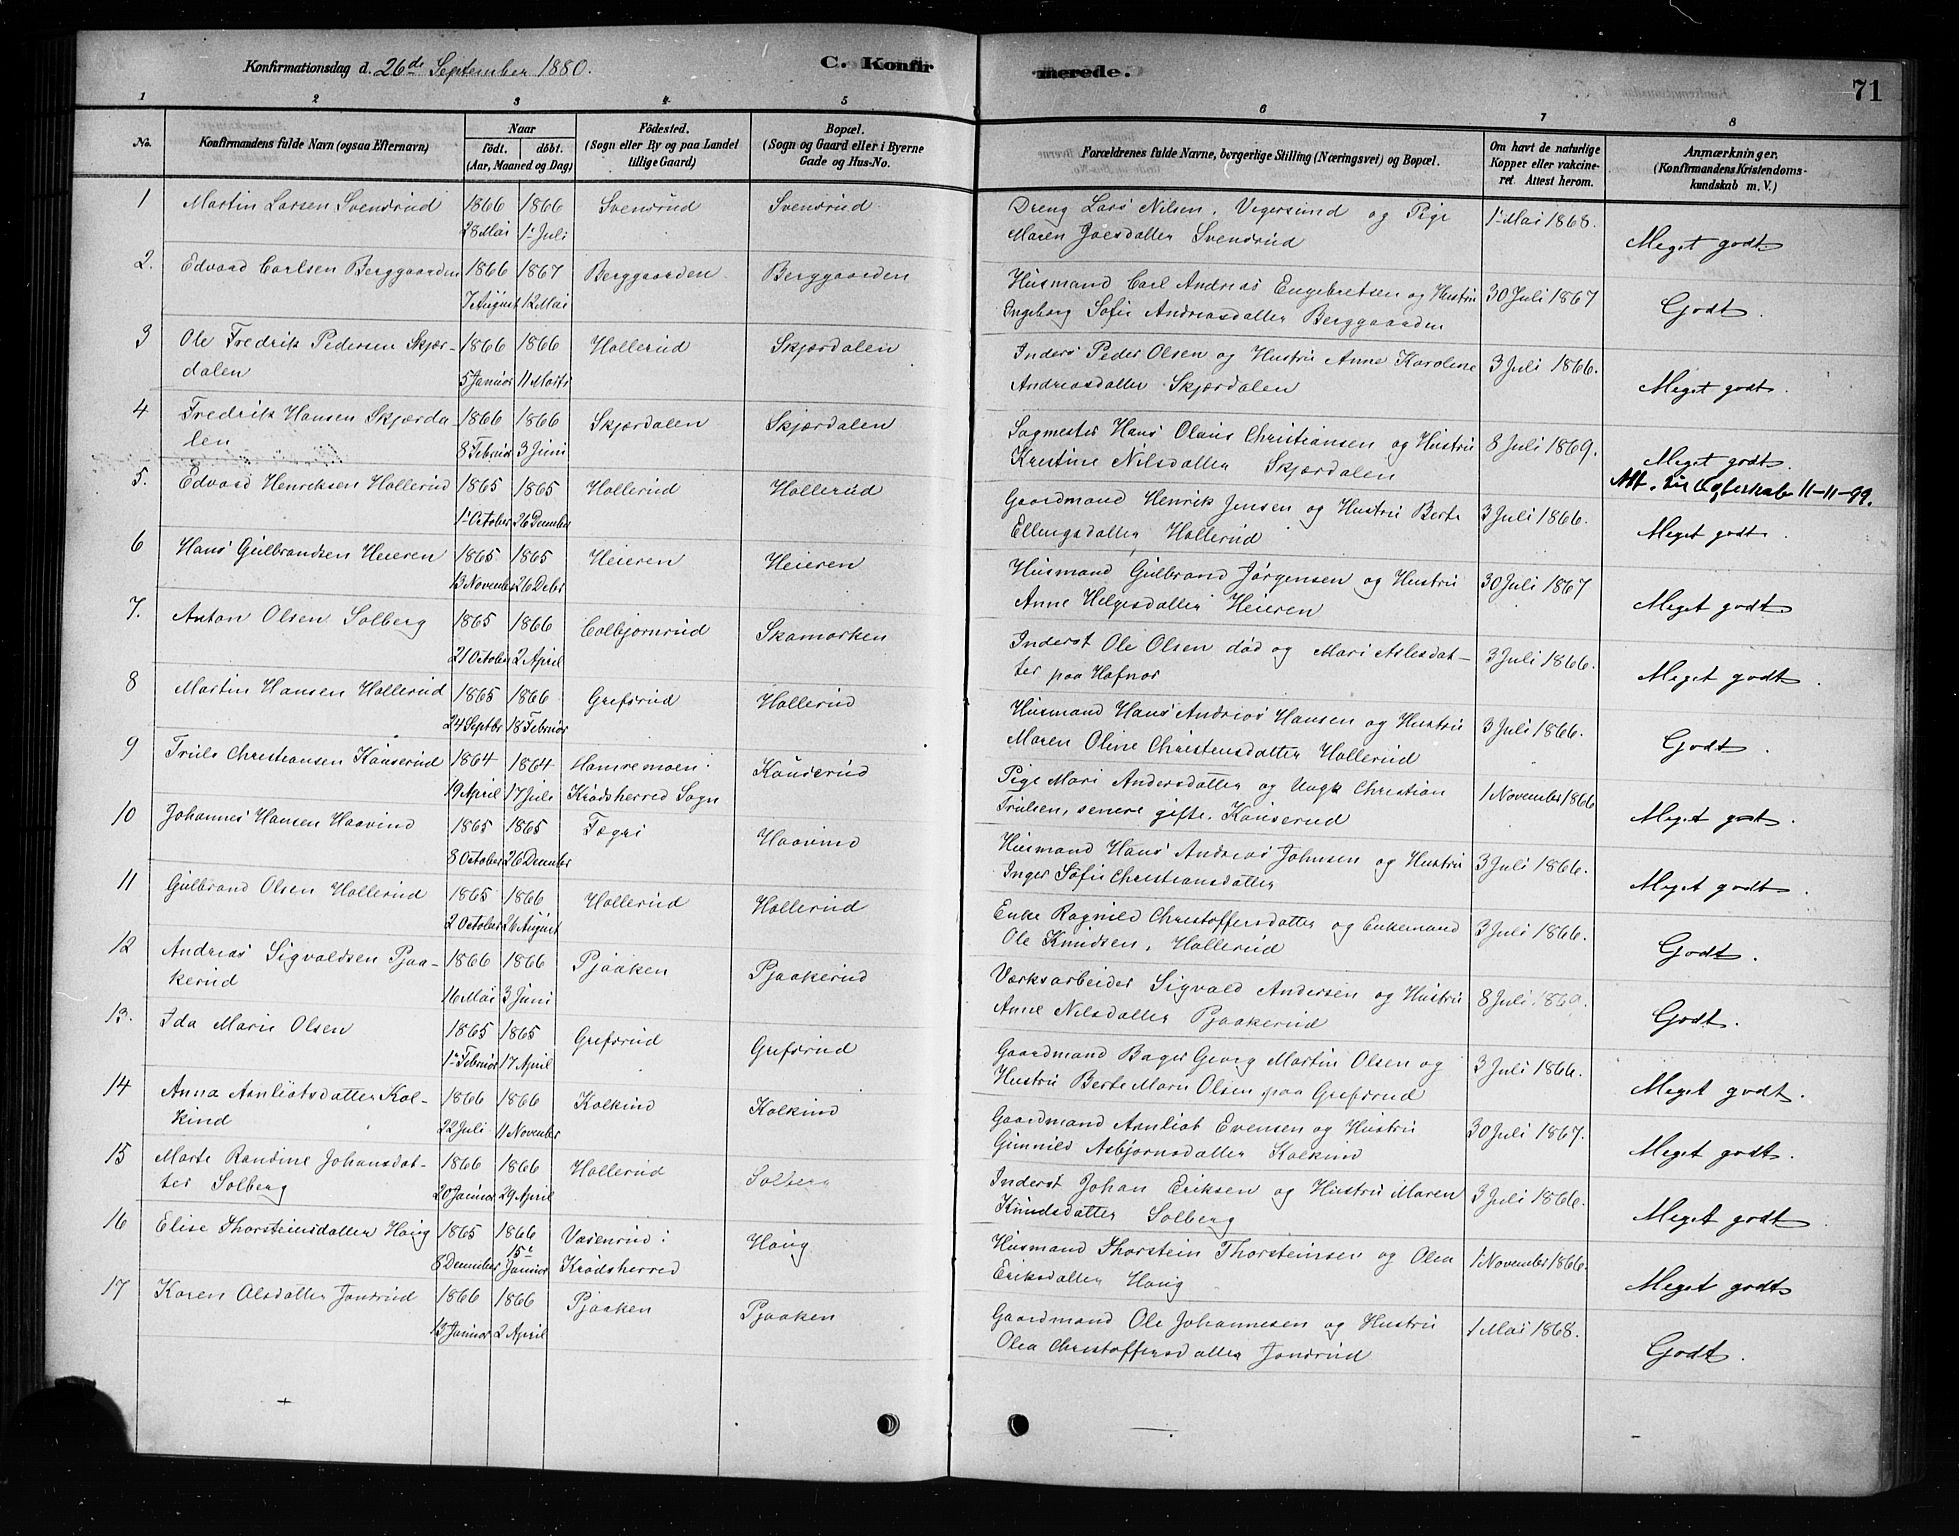 Konfirmationsdag d. 26de September 1880.
C. Konfirmerede.
71
1 2 3 4 5 6 7 8
No.
Konfirmandens fulde Navn (ogsaa Efternavn)
Naar
födt. döbt.
(Aar, Maaned og Dag)
Födested.
(Sogn eller By og paa Landet
tillige Gaard)
Bopæl.
(Sogn og Gaard eller i Byerne
Gade og Hus-No.
Forældrenes fulde Navne, borgerlige Stilling (Næringsvei) og Bopæl.
Om havt de naturlige
Kopper eller vakcine-
ret. Attest herom.
Anmærkninger.
(Konfirmandens Kristendoms-
kundskab m. V.)
1 Martin Larsen Svendsrud 1866 1866 Svensrud Svendsrud Dreng Lars Nilsen, Vegersund og Pige 1 Mai 1868.
28 Mai 1 Juli Maren Joesdatter Svensrud Meget godt
2. Edvard Carlsen Berggaarden 1866 1867 Berggaarden Berggaarden Husmand Carl Andreas Engebretsen og Hustru 30 Juli 1867
7 August 12 Mai Ingeborg Sofie Andreasdatter Berggaarden Godt.
3 Ole Fredrik Pedersen Skjær- 1866 1866 Hollerud Skjærdalen Inders Peder Olsen og Hustru Anne Karoline 3 Juli 1866.
dalen 5 Januar 11 Marts Andreasdatter Skjærdalen Meget godt.
4 Fredrik Hansen Skjærda- 1866 1866 Skjærdalen Skjærdalen Sagmester Hans Olaus Christiansen og Hustru 8 Juli 1869.
len 8 Februar 3 Juni Kristine Nilsdatter Skjærdalen Meget godt.
Att. 11-11-99.
5. Edvard Henriksen Hollerud 1865 1865 Hollerud Hollerud Gaardmand Henrik Jensen og Hustru Berte 3 Juli 1866.
1 October 26 December Ellingsdatter Hollerud Meget godt.
6 Hans Gulbrandsen Heieren 1865 1865 Heieren Heieren Husmand Gulbrand Jørgensen og Hustru 30 Juli 1867
13 November 26 Debr Anne Helgesdatter Heieren Meget godt.
7. Anton Olsen Solberg 1865 1866 Colbjørnrud Skamarken Inderst Ole Olsen død og Mari Aslesdat- 3 Juli 1866.
21 October 2 April ter paa Hafnor Meget godt.
8 Martin Hansen Hollerud 1865 1866 Grefsrud Hollerud Husmand Hans Andreas Hansen og Hustru 3 Juli 1866.
24 Septbr 18 Februar Maren Oline Christensdatter Hollerud Godt.
9 Truls Christiansen Kønserud 1864 1864 Hamremoen i Kønserud Pige Mari Andersdatter og Ungk Christian 1 November 1866
19 April 17 Juli Krødsherred Sogn Trulsen, senere gifte. Kønserud Meget godt.
10 Johannes Hansen Haavind 1865 1865 Fægri Haavind Husmand Hans Andreas Johnsen og Hustru 3 Juli 1866.
8 October 26 December Inger Sofie Christiansdatter Meget godt.
11 Gulbrand Olsen Hollerud 1865 1866 Hollerud Hollerud Enke Ragnild Christoffersdatter og Enkemand 3 Juli 1866.
2 October 26 August Ole Knudsen, Hollerud Godt.
12 Andreas Sigvaldsen Pjaa- 1866 1866 Pjaaken Pjaakerud Værksarbeider Sigvald Andersen og Hustru 8 Juli 1869.
kerud 16 Mai 3 Juni Anne Nilsdatter Pjaakerud Godt.
13. Ida Marie Olsen 1865 1865 Grefsrud Grefsrud Gaardmand Bager Georg Martin Olsen og 3 Juli 1866.
1 Februar 17 April Hustru Berte Marie Olsen paa Grefsrud Meget godt.
14 Anna Arnliotsdatter Kol- 1866 1866 Kolkind Kolkind Gaardmand Arnliot Evensen og Hustru 30 Juli 1867.
kind 22 Juli 11 November Gunnild Asbjørnsdatter Kolkind Meget godt.
15 Marte Randine Johansdat- 1866 1866 Hollerud Solberg Inderst Johan Eriksen og Hustru Maren 3 Juli 1866.
ter Solberg 20 Januar 29 April Knudsdatter Solberg Meget godt.
16 Elise Thorsteinsdatter Haug 1865 1866 Vasenrud i Haug Husmand Thorstein Thorsteinsen og Olea 1 November 1866.
8 December 15 Januar Krødsherred Eriksdatter Haug Meget godt
17 Karen Olsdatter Jondrud 1866 1866 Pjaaken Pjaaken Gaardmand Ole Johannesen og Hustru 1 Mai 1868.
13 Januar 2 April Olea Christoffersdatter Jondrud Godt.